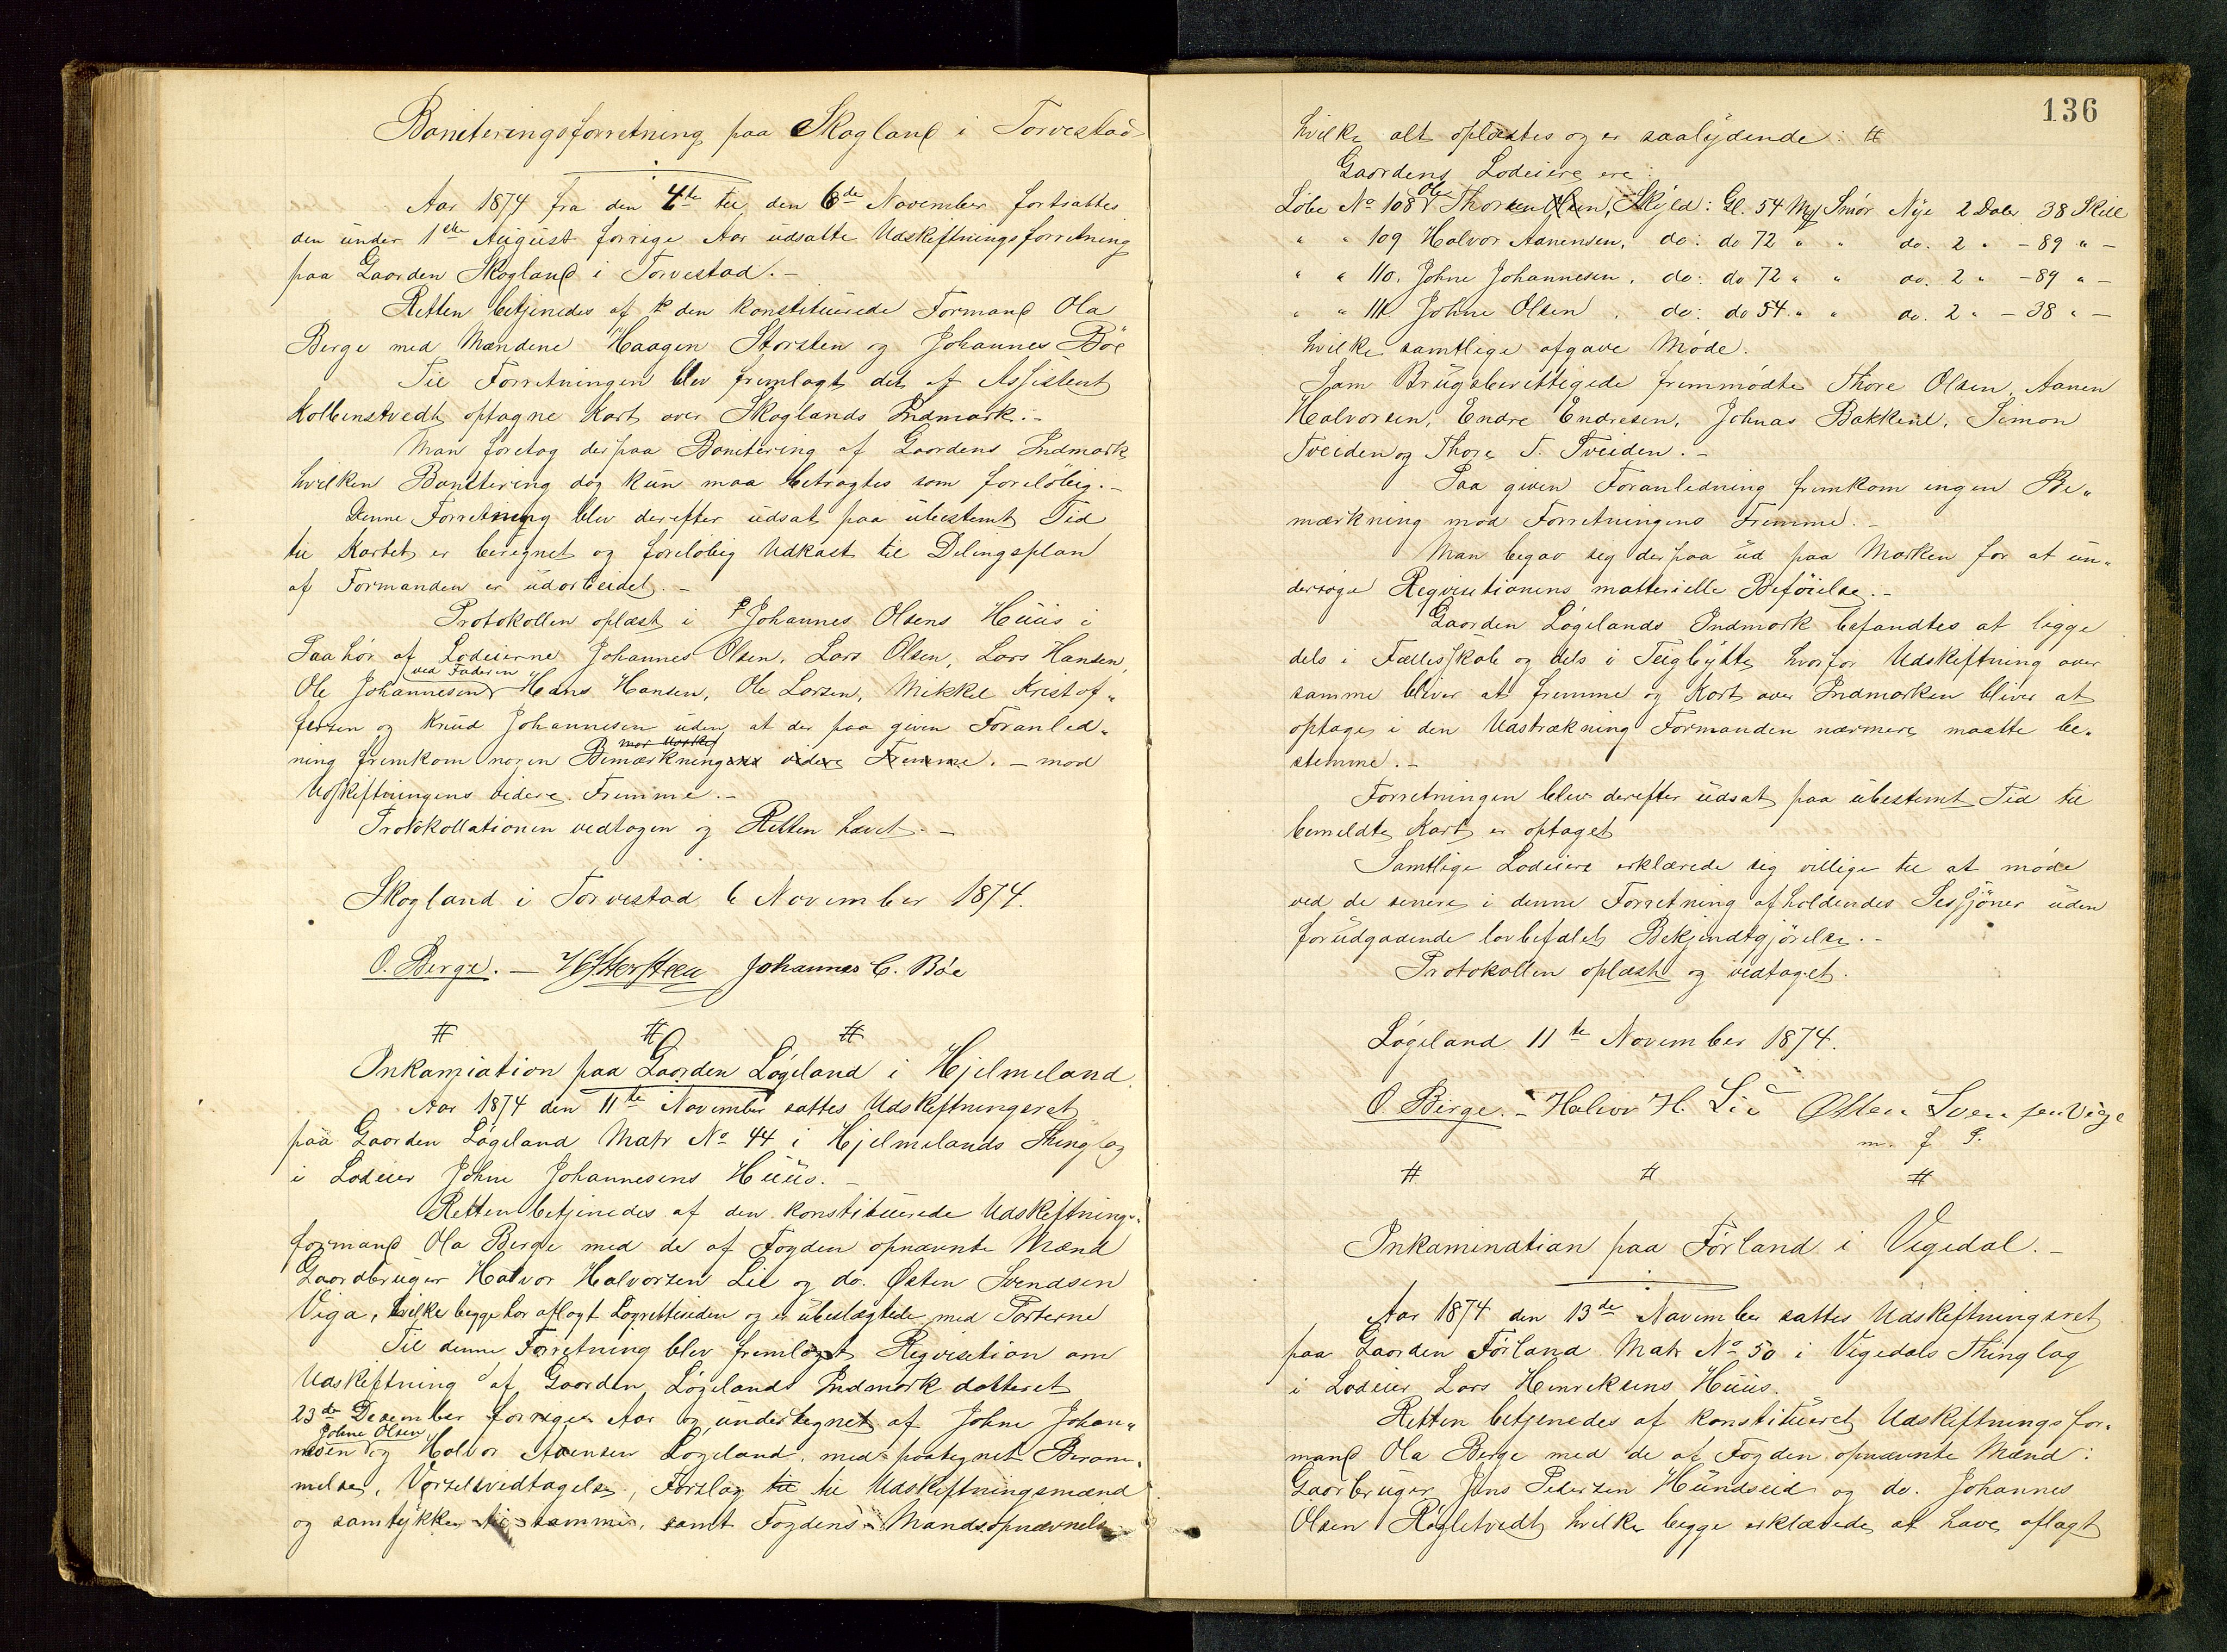 Boniteringsforretning paa Skogland i Torvestad
Aar 1874 fra den 4de til den 6de November fortsattes
den under 1ste August forrige Aar udsatte Udskiftningsforretning
paa Gaarden Skogland i Torvestad.-
Retten betjenedes af den konstituerede Formand Ola
Berge med Mændene Haagen Storsten og Johannes Böe
Til Forretningen blev fremlagt det af Assistent
Kolbenstvedt optagne Kart over Skoglands Indmark.-
Man foretog derpaa Bonitering af Gaardens Indmark
hvilken Bonitering dog kun maa betragtes som foreløbig.-
Denne Forretning blev derefter udsat paa ubestemt Tid
til Kartet er beregnet og foreløbig Udkast til Delingsplan
af Formanden er udarbeidet.-
Protokollen oplæst i Johannes Olsens Huus i
Paahör af Lodeierne Johannes Olsen, Lars Olsen, Lars Hansen,
ved Faderen
Ole Johannesen Hans Hansen, Ole Larsen, Mikkel Kristof„
fersen og Knud Johannesen uden at der paa given Foranled„
ning fremkom nogen Bemærkning videre Fremme. - mod
Udskiftningens videre Fremme.-
Protokollationen vedtagen og Retten hævet.-
Skogland i Torvestad 6 November 1874.
O. Berge. - HStorsteen Johannes C. Böe
# # #
Inkamiation paa Gaarden Løgeland i Hjelmeland.
Aar 1874 den 11te November sattes Udskiftningsret
paa Gaarden Løgeland Matr No 44 i Hjelmelands Thinglag
i Lodeier Johne Johannesens Huus.-
Retten betjenedes af den konstituerede Udskiftnings„
formand Ola Berge med de af Fogden opnævnte Mænd
Gaardbruger Halvor Halvorsen Lie og do. Østen Svendsen
Viga, hvilke begge har aflagt Lagretteseden og er ubeslægtede med Parterne
Til denne Forretning blev fremlagt Reqvisition om
Udskiftning af Gaarden Løgelands Indmark datteret
23de Desember forrige Aar og undertegnet af Johne Johan„
Johne Olsen
nesen og Halvor Aanensen Løgeland, med paategnet Beram„
melse, Varselsvedtagelse, Forslag til til Udskiftningsmænd
og samtykke til samme, samt Fogdens Mandsopnævnelse
136
hvilke alt oplæstes og er saalydende: #
Gaardens Lodeiere ere:
Ole
Löbe No 108 Thorsen Olsen, Skyld: Gl. 54 Mrk Smör Nye 2 Daler 38 Skill
" " 109 Halvor Aanensen, do: do 72 " " do. 2 " - 89 " -
" " 110. Johne Johannesen, do: do 72 " " do. 2 " - 89 " -
" " 111. Johne Olsen . do: do 54 " " do. 2 " - 38 " -
hvilke samtlige afgave Møde.
Som Brugsberettigede fremmödte Thore Olsen, Aanen
Halvorsen, Endre Endresen, Johnas Bakkene, Simon
Tveiden og Thore T. Tveiden.-
Paa given Foranledning fremkom ingen Be„
mærkning mod Forretningens Fremme.-
Man begav seg derpaa ud paa Marken for at un„
dersøge Reqvisitionens matterielle Beføielse.-
Gaarden Løgelands Indmark befandtes at ligge
dels i Fællesskab og dels i Teigbytte hvorfor Udskiftning over
samme bliver at fremme og Kart over Indmarken bliver at
optage i den Udstrækning Formanden nærmere maatte be„
stemme.-
Forretningen blev derefter udsat paa ubestemt Tid til
bemeldte Kart er optaget
Samtlige Lodeiere erklærede sig villige til at møde
ved de senere i denne Forretning afholdendes Sessjöner uden
forudgaaende lovbefalet Bekjendtgjörelse.-
Protokollen oplæst og vedtaget.
Løgeland 11te November 1874.
O Berge. - Halvor H. Lie Østen Svensen Vige
m. f P.
# # #
Inkamination paa Førland i Vigedal.-
Aar 1874 den 13de November sattes Udskiftningsret
paa Gaarden Førland Matr No 50 i Vigedals Thinglag
i Lodeier Lars Henriksens Huus.
Retten betjenedes af konstitueret Udskiftningsfor„
mand Ola Berge med de af Fogden opnævnte Mænd:
Gaarbruger Jens Pedersen Hundseid og do. Johannes
Olsen Røgletvedt hvilke begge erklærede at have aflagt